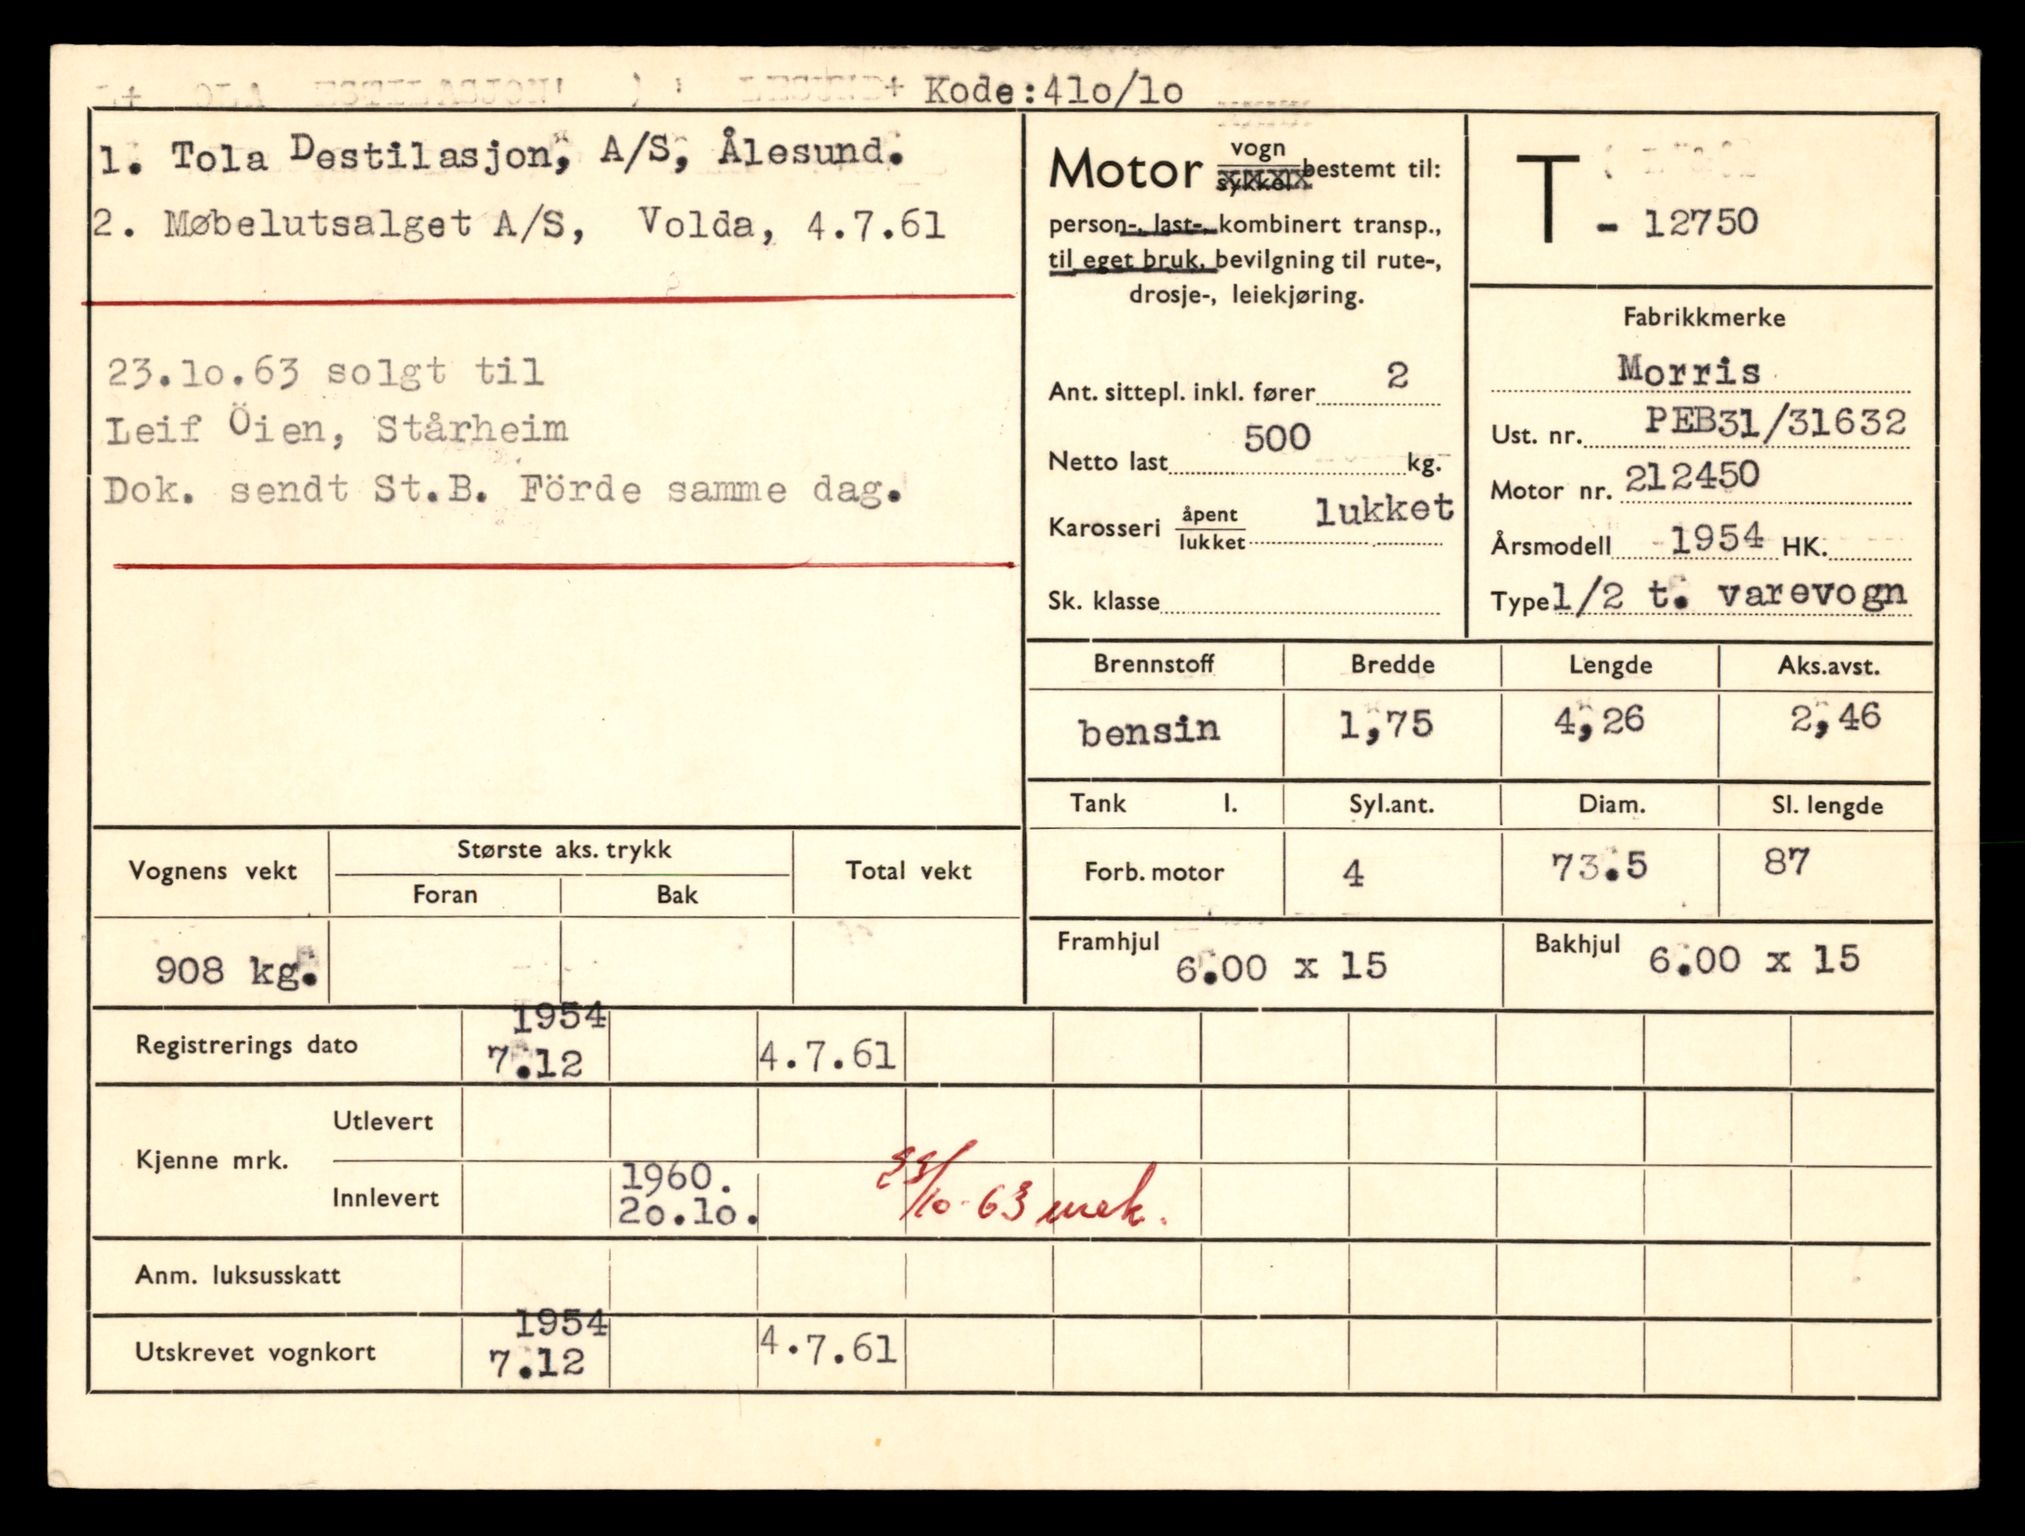 Kode:41o/1o
1. Tola Destilasjon, A/S, Ålesund.
2. Møbelutsalget A/S, Volda, 4.7.61
23.1o.63 solgt til
Leif Öien, Stårheim
Dok. sendt St.B. Förde samme dag.
Motor vogn sykkel bestemt til:
person-, last-, kombinert transp.,
til eget bruk, bevilgning til rute-,
drosje-, leiekjøring.
Ant. sittepl. inkl. fører 2
Netto last 500 kg.
Karosseri åpent lukket lukket
Sk. klasse
T - 12750
Fabrikkmerke
Morris
Ust. nr. PEB31/31632
Motor nr. 212450
Årsmodell 1954 HK.
Type 1/2 t. varevogn
Brennstoff Bredde Lengde Aks.avst.
bensin 1,75 4,26 2,46
Tank l. Syl.ant. Diam. Sl. lengde
Forb. motor 4 73.5 87
Framhjul 6.00 x 15 Bakhjul 6.00 x 15
Vognens vekt Største aks. trykk Total vekt
Foran Bak
908 kg.
1954
Registrerings dato 7.12 4.7.61
Utlevert
Kjenne mrk.
Innlevert 1960. 2o.1o. 23/10-63 mek.
Anm. luksusskatt
1954
Utskrevet vognkort 7.12 4.7.61